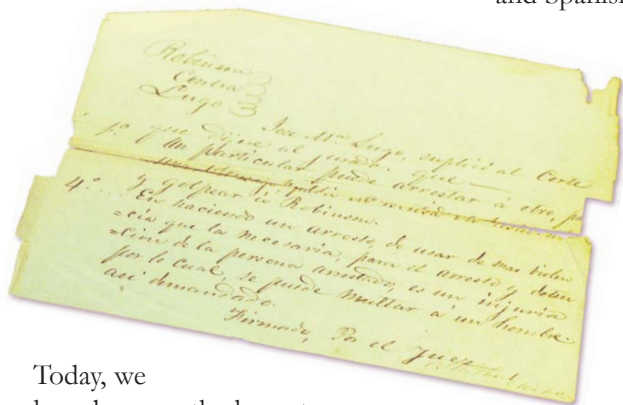 and Spanis
Robinson
Contra
Lugo
Jose Ma. Lugo, suplica al Corte
que dijue al que —
Un particular puede arrestar á otro,
y golpear á Robinson.
4.o En haciendo un arresto, de usar de mas violen
=cia que la necesaria, para el arresto y deten
=cion de la persona arrestado, es un injuria
por le cual, se puede multar a un hombre
asi demandado.
Firmado, Por el Juez
Today, we